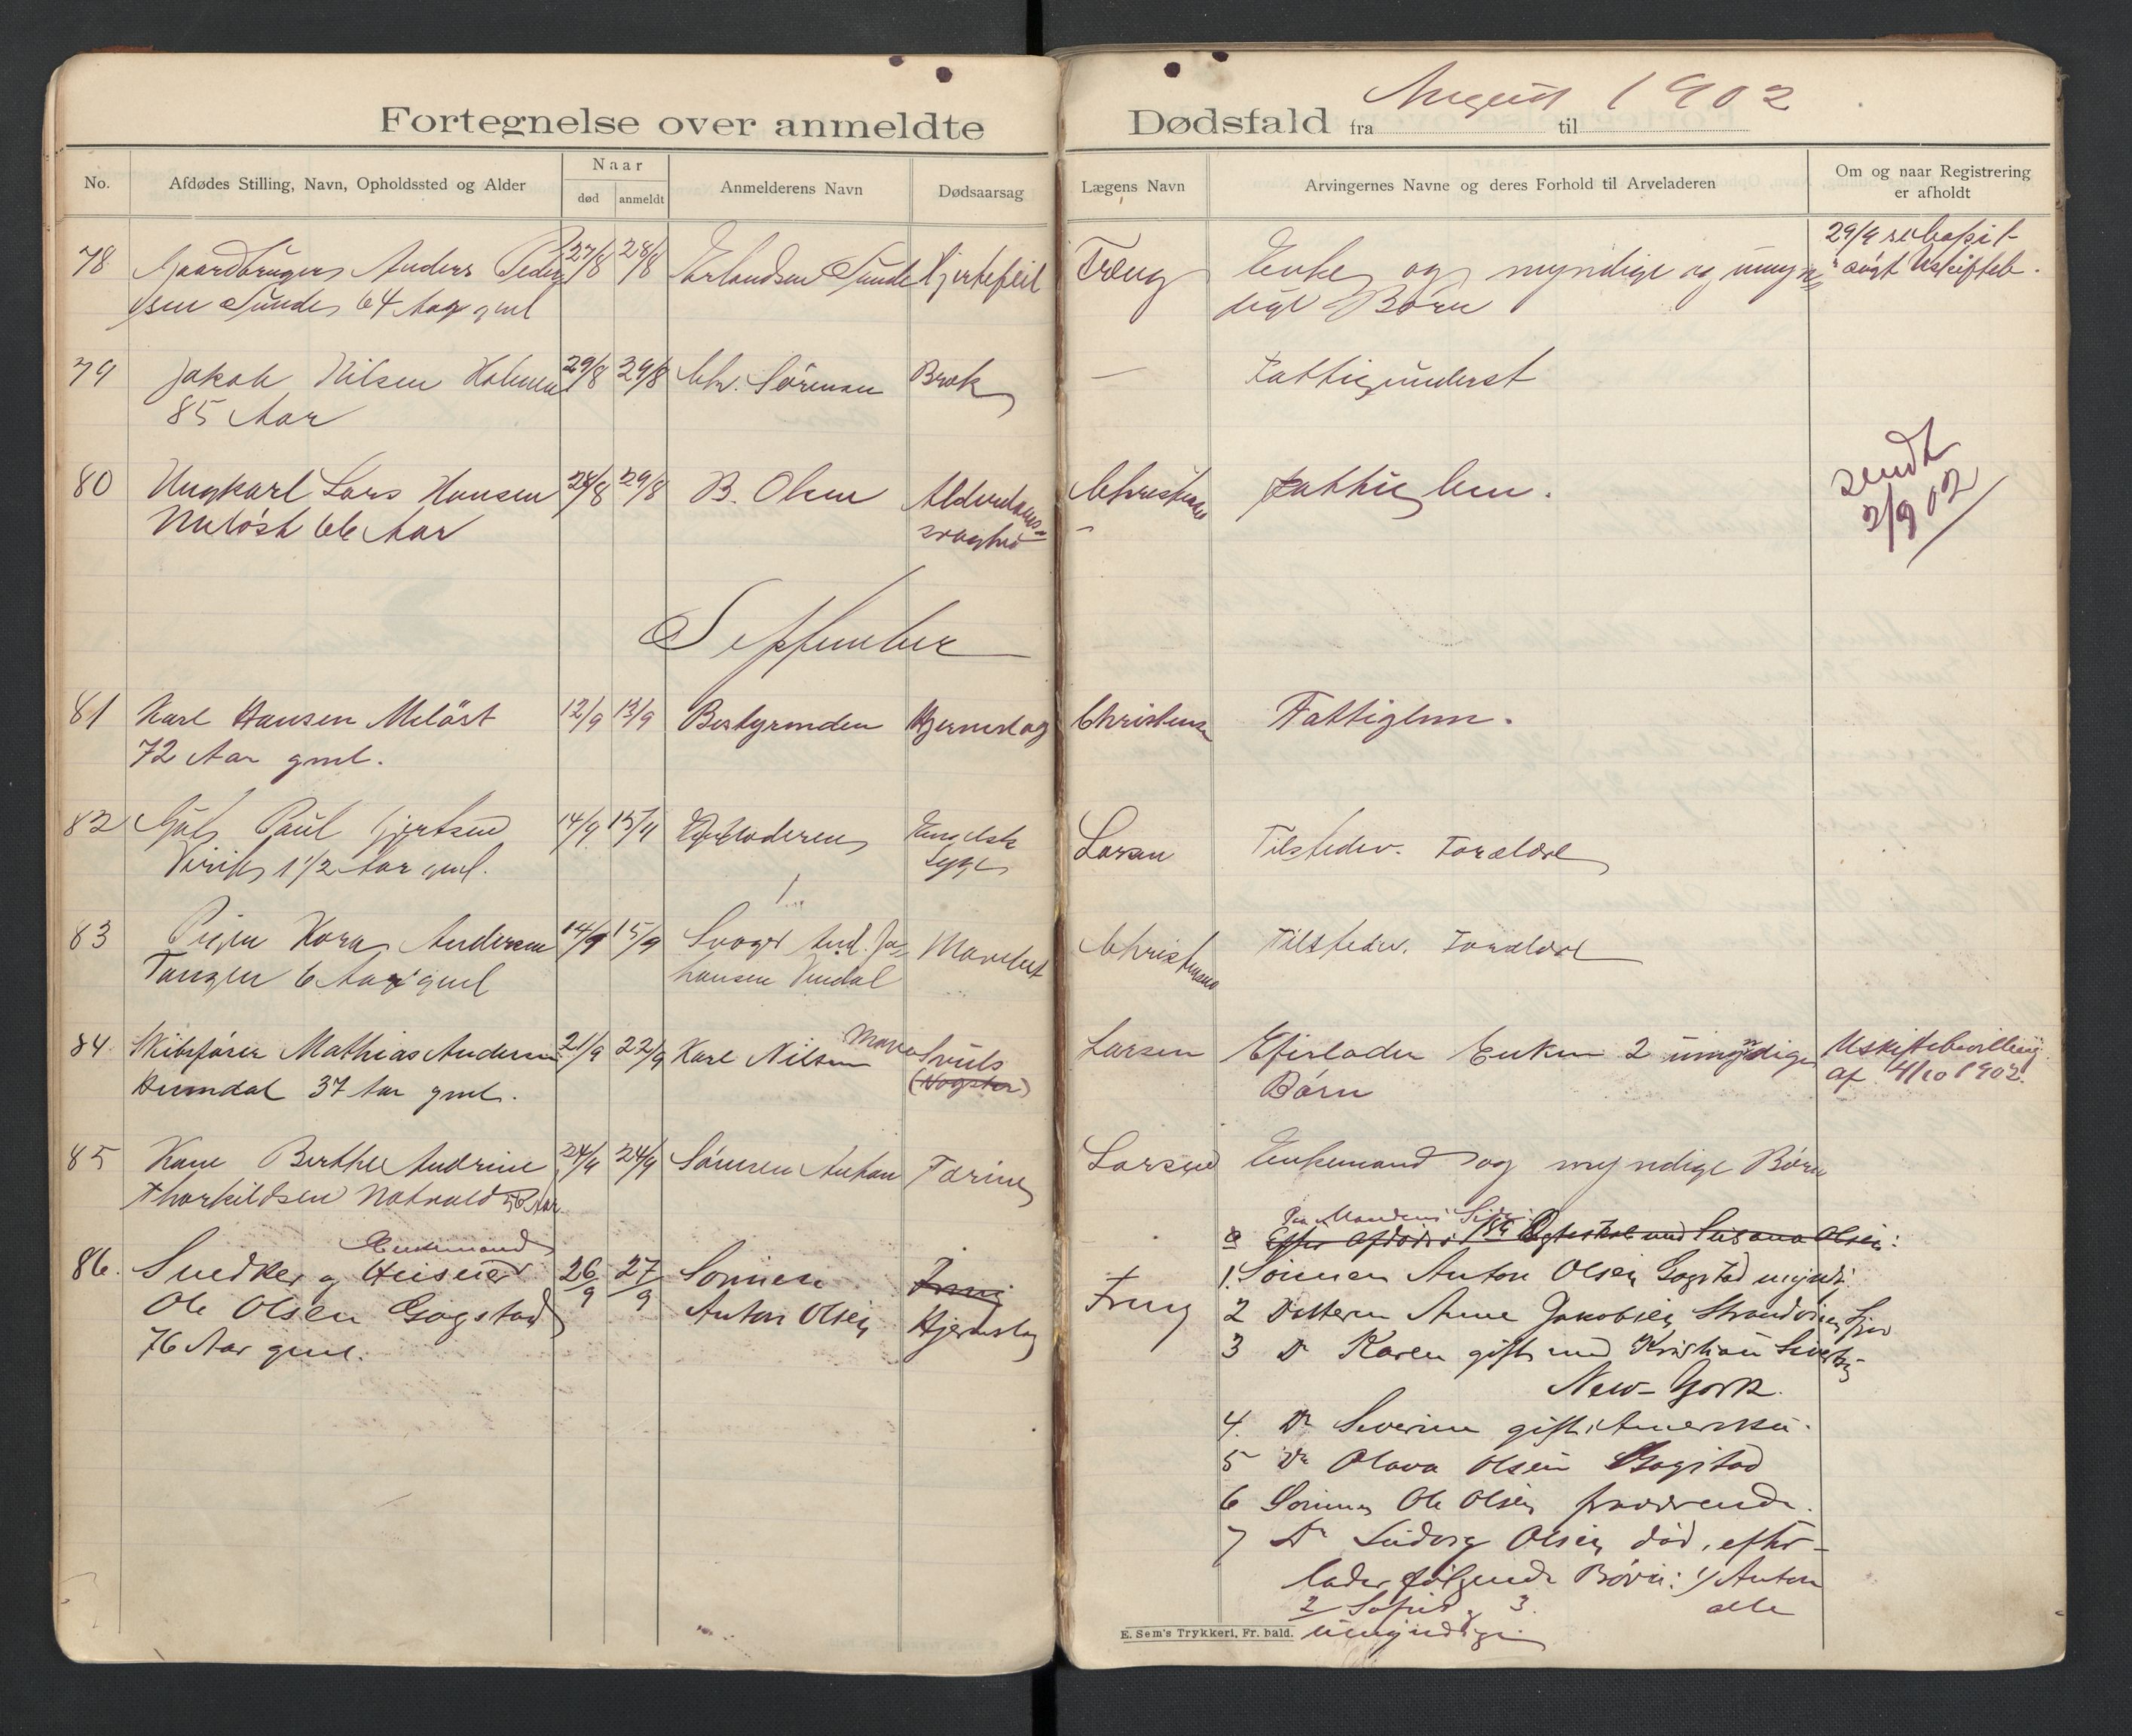 Fortegnelse over anmeldte Dødsfald fra August 1902 til
No.
Afdødes Stilling, Navn, Opholdssted og Alder
Naar
død
anmeldt
Anmelderens Navn
Dødsaarsag
Lægens Navn
Arvingernes Navne og deres Forhold til Arveladeren
Om og naar Registrering
er afholdt
78 Gaardbruger Anders Peder 27/8 28/8 Erlandsen Sunde Hjertefeil Træug Enke og myndige og umyn=
sen Sunde 64 Aar gml dige Børn
29/9
søgt Uskifteb.
79 Jakob Nilsen Holmen 29/8 29/8 Chr. Sörensen Brok — Fattigunderst
85 Aar
80 Ungkarl Lars Hansen 28/8 29/8 B. Olsen Alderdoms= Christensen Fattiglem.
Meløst 66 Aar svaghed
sendt
2/9 02
September
81 Karl Hansen Meløst 12/9 13/9 Bestyrinden Hjerneslag Christensen Fattiglem.
72 Aar gml.
82 Gut Paul Gjertsen 14/9 15/9 Engelsk Larsen Tilstedev. Forældre
Virik 1 1/2 Aar gml. Syge
83 Pigen Kora Andersen 14/9 15/9 Svoger And. Jo= Christensen Tilstedev. Forældre
Tangen 6 Aar gml hansen Vindal
84. Skibsfører Mathias Andersen 21/9 22/9 Karl Nilsen Mave Svuls Larsen Efterlader Enken 2 umyndige
Hemdal 37 Aar gml. Børn
Uskiftebevilling
af 4/10 1902.
85 Kone Berthe Andrine 24/9 24/9 Sönnen Anton Tæring Larsen Enkemand og myndige Børn
Thorkildsen 56 Aar
Paa Mandens Side:
a Efter afdødes 1ste Egteskab med Susana Olsen:
Enkemand
86. Snedker og Huseier 26/9 27/9 Sönnen Træug 1. Sönnen Anton Olsen Gogstad myndi
Ole Olsen Gogstad Anton Olsen Hjerneslag 2 Datteren Anne Jakobsen
76 Aar gml. 3 Do Karen gift med Kristian
New-York.
4. Do Severine gift i Amerika.
5 Do Olava Olsen Gogstad
6 Sönnen Ole Olsen fraværende.
7 Do Ludvig Olsen død, efter-
lader følgende Børn: 1/ Anton
2 og 3. alle
umyndige
E. Sem's Trykkeri, Fr. hald.